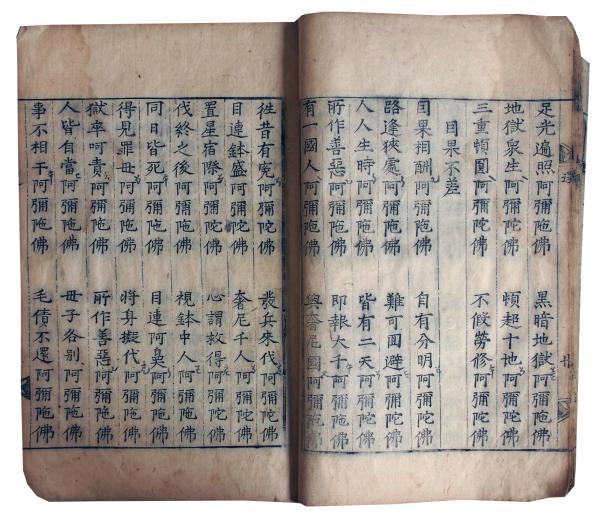 足光遍照阿彌陀佛 黑暗地獄阿彌陀佛
地獄衆生阿彌陀佛 頓超十地阿彌陀佛
三重頓圓阿彌陀佛 不假勞修阿彌陀佛
因果不差
因果相酬阿彌陀佛 自有分明阿彌陀佛
路逢狹處阿彌陀佛 難可回避阿彌陀佛
人人生時阿彌陀佛 皆有二天阿彌陀佛
所作善惡阿彌陀佛 即報大千阿彌陀佛
有一國人阿彌陀佛 與奢尼國阿彌陀佛
徃昔有寃阿彌陀佛 發兵來伐阿彌陀佛
目連鉢盛阿彌陀佛 奢尼千人阿彌陀佛
置星宿際阿彌陀佛 心謂救得阿彌陀佛
伐終之後阿彌陀佛 視鉢中人阿彌陀佛
同日皆死阿彌陀佛 目連阿㚖阿彌陀佛
得見罪毋阿彌陀佛 將身擬代阿彌陀佛
獄率呵責阿彌陀佛 所作善惡阿彌陀佛
人皆自當阿彌陀佛 毋子各別阿彌陀佛
事不相干阿彌陀佛 毛債不還阿彌陀佛